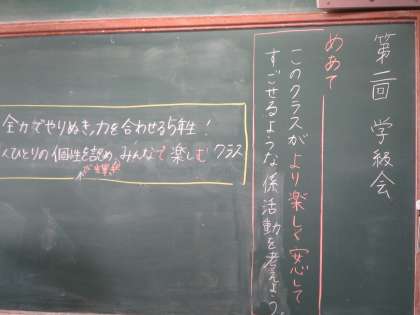 第二回 学級会
めあて
このクラスがより楽しく安心して
すごせるような係活動を考えよう。
全力でやりぬき、力を合わせる5年生！
人ひとりの個性を認め、みんなで楽しむクラス